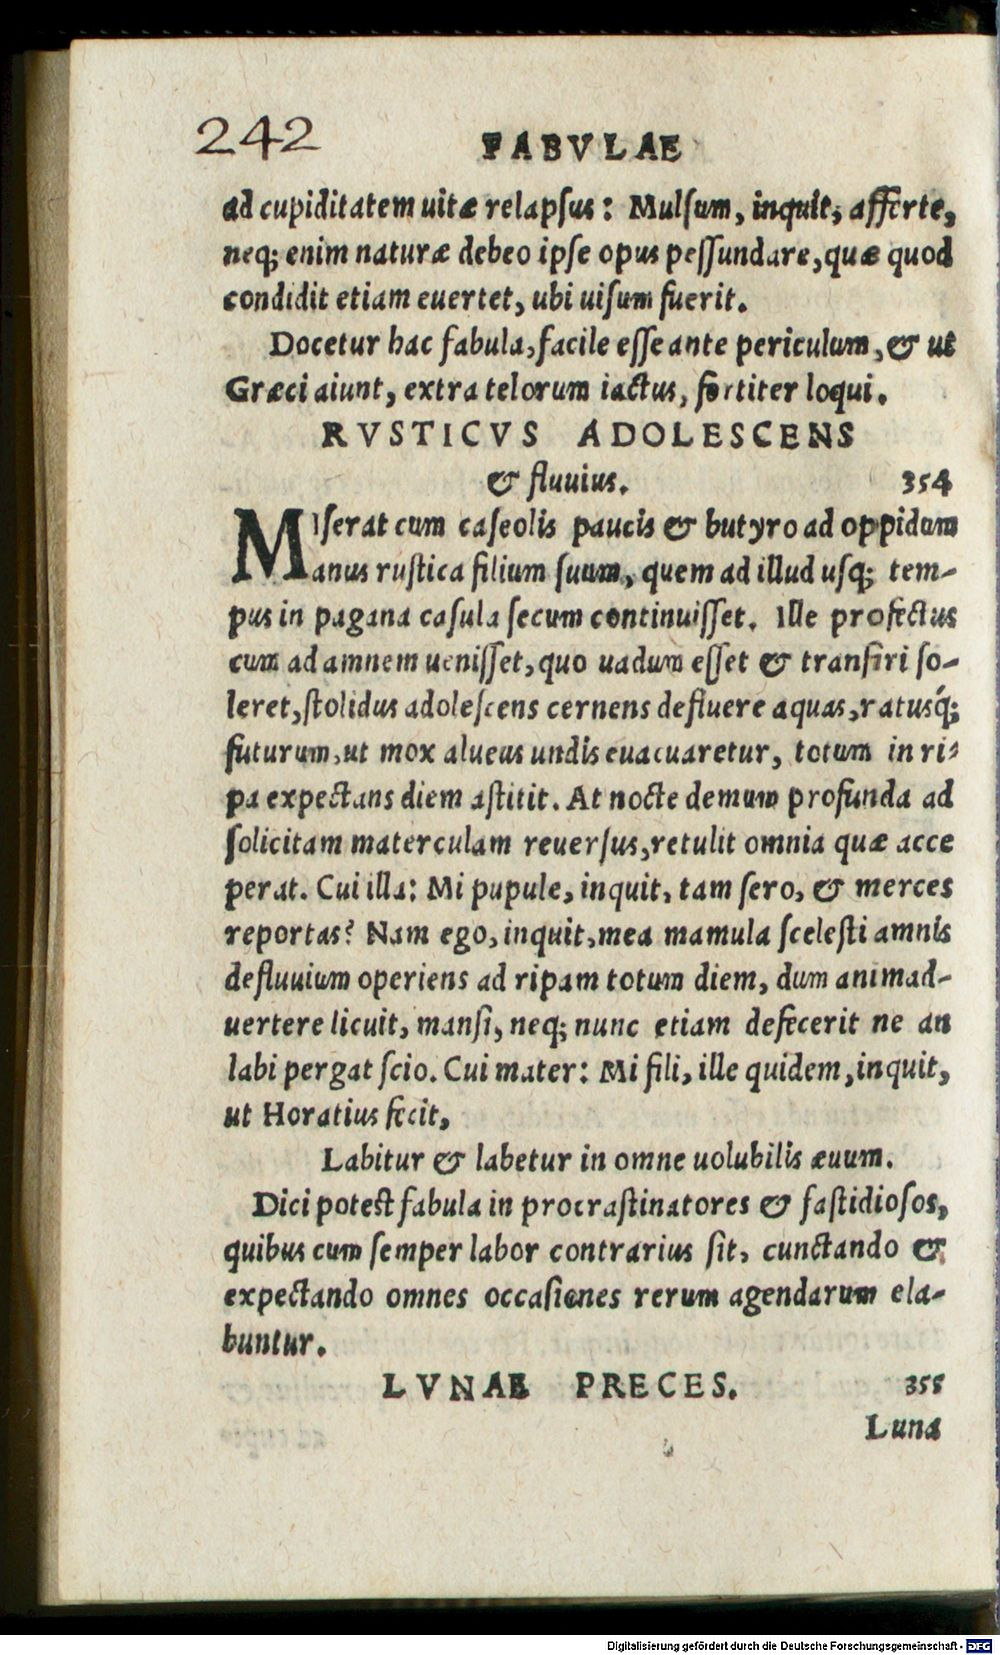 242
FABVLAE
ad cupiditatem uitæ relapsus: Mulsum, inquit, afferte,
neq; enim naturæ debeo ipse opus pessundare, quæ quod
condidit etiam euertet, ubi uisum fuerit.
Docetur hac fabula, facile esse ante periculum, & ut
Græci aiunt, extra telorum iactus, fortiter loqui.
RVSTICVS ADOLESCENS
& fluuius. 354
MIserat cum caseolis paucis & butyro ad oppidum
anus rustica filium suum, quem ad illud usq; tem-
pus in pagana casula secum continuisset. Ille profectus
cum ad amnem uenisset, quo uadum esset & transiri so-
leret, stolidus adolescens cernens defluere aquas, ratusq́;
futurum, ut mox alueus undis euacuaretur, totum in ri-
pa expectans diem astitit. At nocte demum profunda ad
solicitam materculam reuersus, retulit omnia quæ acce
perat. Cui illa: Mi pupule, inquit, tam sero, & merces
reportas? Nam ego, inquit, mea mamula scelesti amnis
defluuium operiens ad ripam totum diem, dum animad-
uertere licuit, mansi, neq; nunc etiam defecerit ne an
labi pergat scio. Cui mater: Mi fili, ille quidem, inquit,
ut Horatius fecit,
Labitur & labetur in omne uolubilis æuum.
Dici potest fabula in procrastinatores & fastidiosos,
quibus cum semper labor contrarius sit, cunctando &
expectando omnes occasiones rerum agendarum ela-
buntur.
LVNAE PRECES. 355
Luna
Digitalisierung gefördert durch die Deutsche Forschungsgemeinschaft - DFG